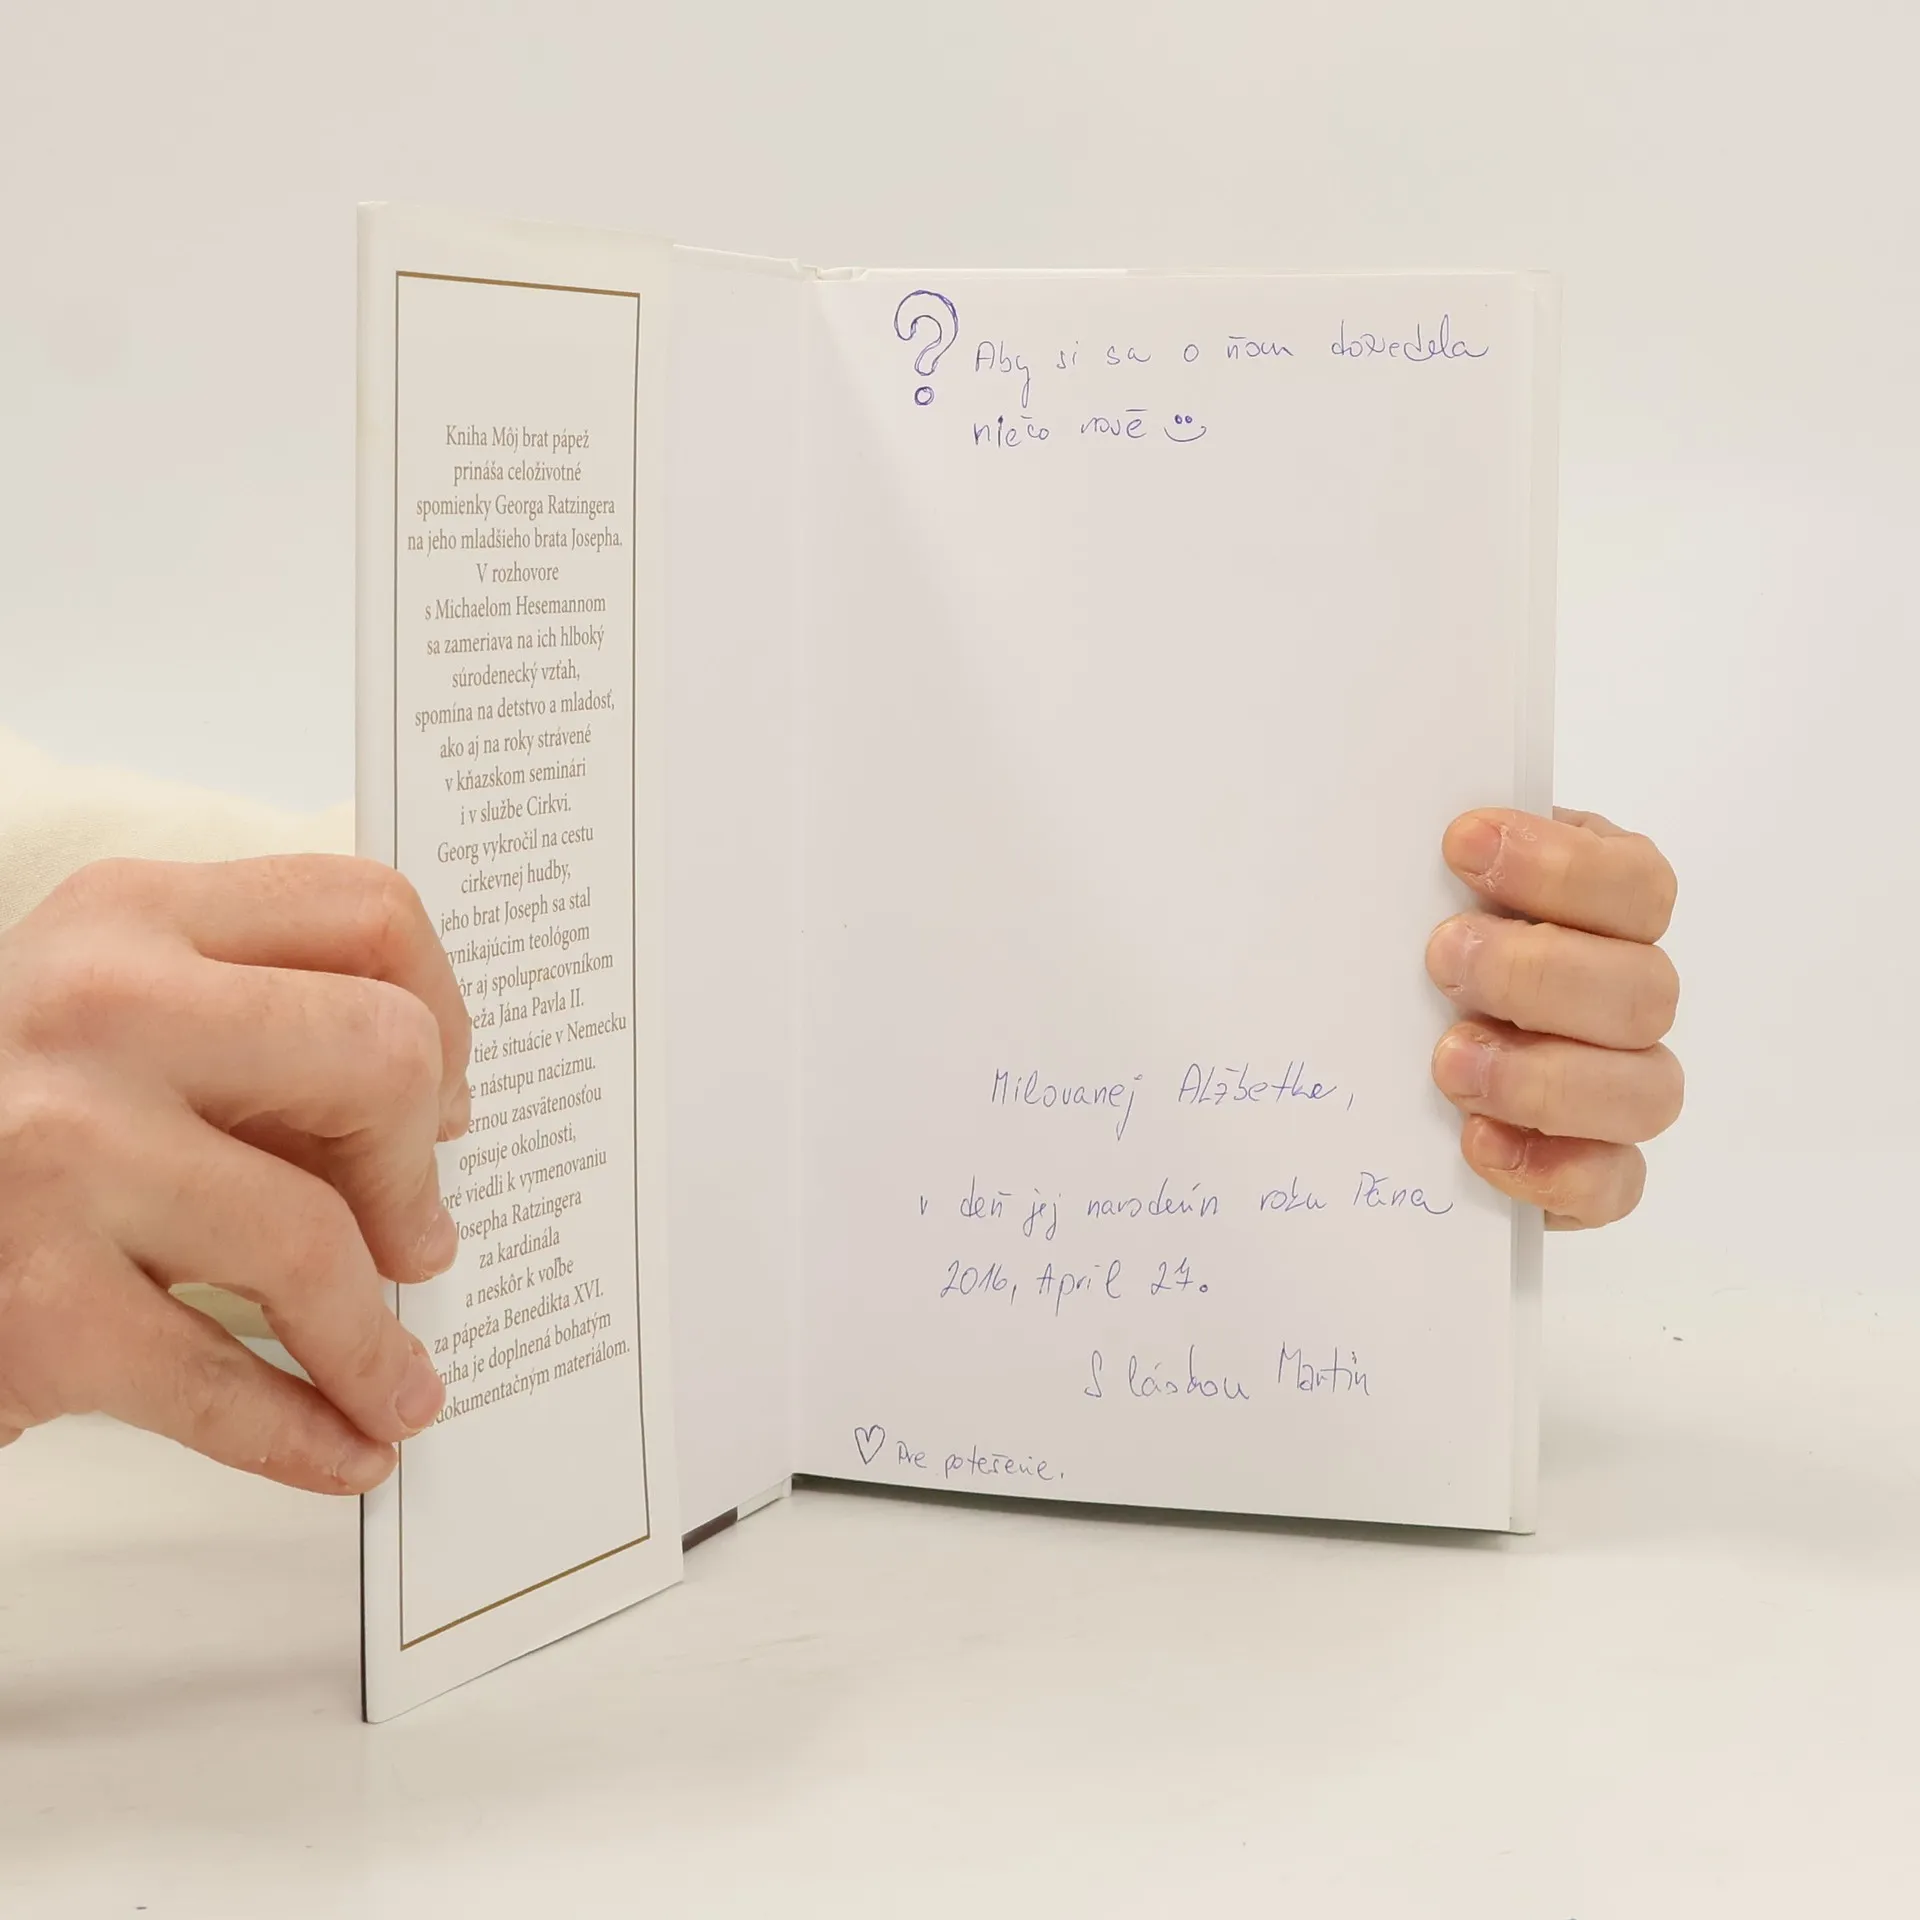 Kniha Môj brat pápež
prináša celoživotné
spomienky Georga Ratzingera
na jeho mladšieho brata Josepha.
V rozhovore
s Michaelom Hesemannom
sa zameriava na ich hlboký
súrodenecký vzťah,
spomína na detstvo a mladosť,
ako aj na roky strávené
v kňazskom seminári
i v službe Cirkvi.
Georg vykročil na cestu
cirkevnej hudby,
jeho brat Joseph sa stal
ynikajúcim teológom
ôr aj spolupracovníkom
eža Jána Pavla II.
tiež situácie v Nemecku
e nástupu nacizmu.
ernou zasvätenosťou
opisuje okolnosti,
oré viedli k vymenovaniu
Josepha Ratzingera
za kardinála
a neskôr k voľbe
za pápeža Benedikta XVI.
niha je doplnená bohatým
dokumentačným materiálom.
? Aby si sa o ňom dozvedela
niečo nové
Milovanej Alžbetke,
v deň jej narodenín roku Pána
2016, April 27.
S láskou Martin
♡ Pre potešenie.